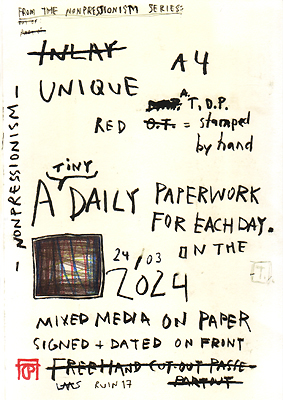 FROM THE NONPRESSIONISM SERIES
INLAY
A4
UNIQUE
A. T.D.P.
RED O.T. = stamped
by hand
- NONPRESSIONISM -
TINY
A DAILY PAPERWORK
FOR EACH DAY.
ON THE
24/03
2024
MIXED MEDIA ON PAPER
SIGNED + DATED ON FRONT
FREEHAND CUT-OUT PASSE-
PARTOUT